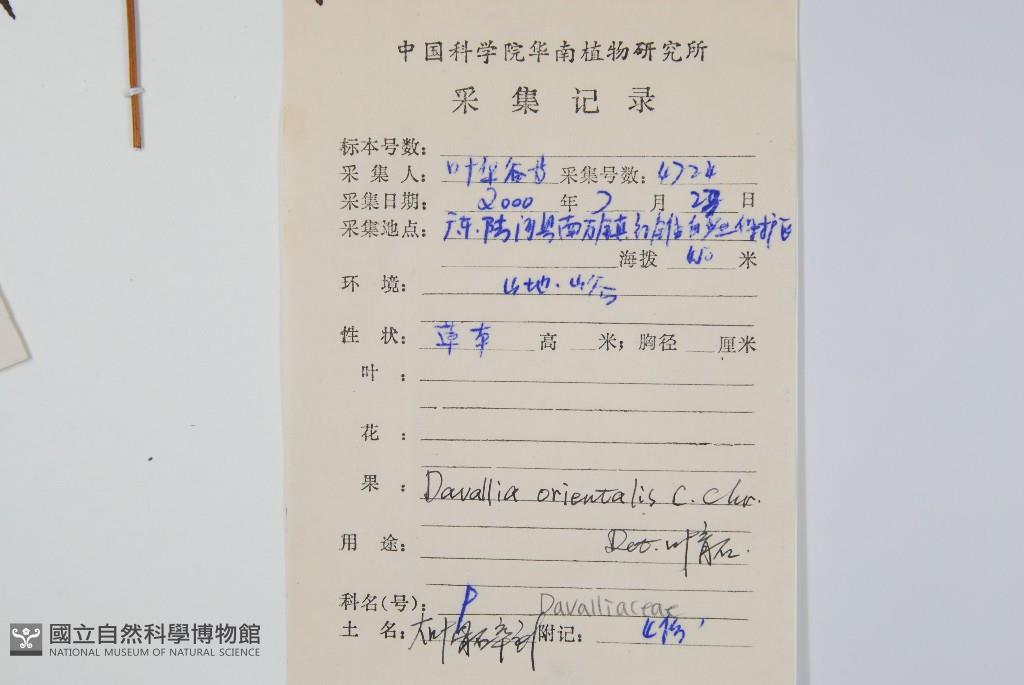 中国科学院华南植物研究所
采集记录
标本号数:
采集人: 叶华谷 采集号数: 4724
采集日期: 2000 年 7 月 日
采集地点: 广东.陆河县南万镇红 保护区
海拨 米
环境: 山地.山
性状: 草本 高 米; 胸径 厘米
叶:
花:
果: Davallia orientalis C. Chr.
Det. 叶育石.
用途:
科名(号): P Davalliaceae
土名: 大叶骨碎补 附记: 4份
國立自然科學博物館
NATIONAL MUSEUM OF NATURAL SCIENCE